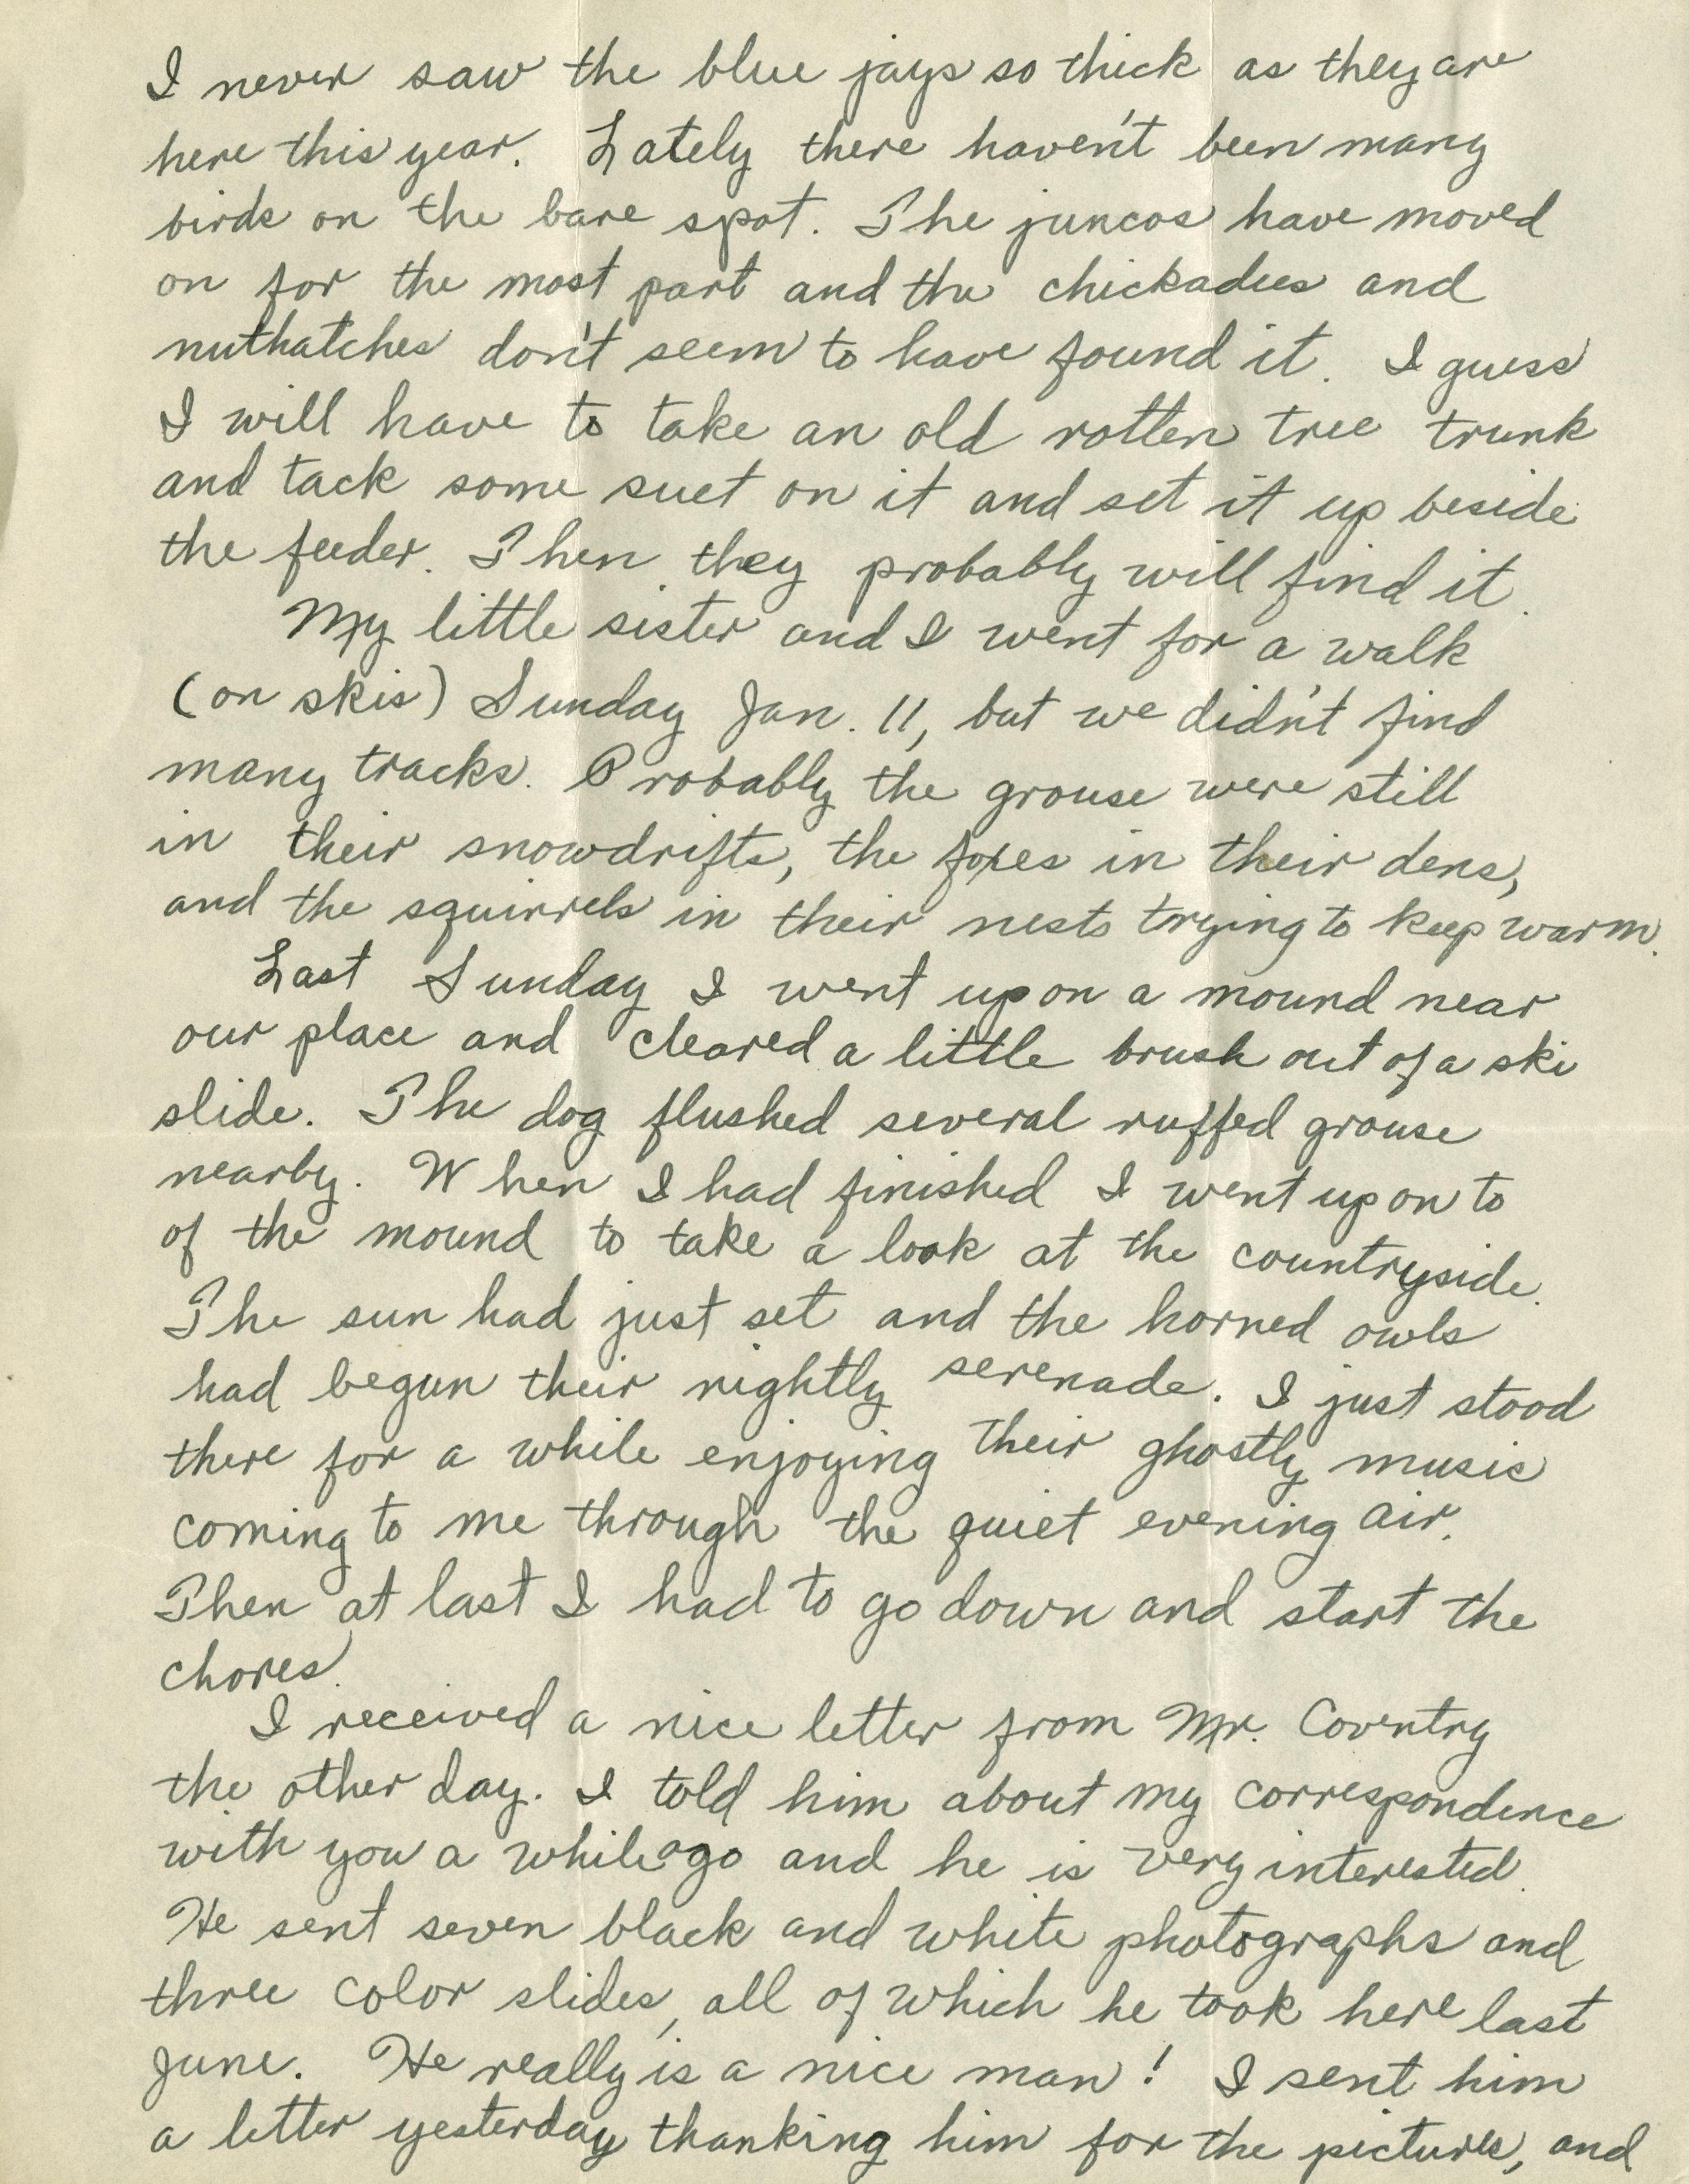 I never saw the blue jays so thick as they are
here this year. Lately there haven't been many
birds on the bare spot. The juncos have moved
on for the most part and the chickadees and
nuthatches don't seem to have found it. I guess
I will have to take an old rotten tree trunk
and tack some suet on it and set it up beside
the feeder. Then they probably will find it.
My little sister and I went for a walk
(on skis) Sunday Jan. 11, but we didn't find
many tracks. Probably the grouse were still
in their snowdrifts, the foxes in their dens,
and the squirrels in their nests trying to keep warm.
Last Sunday I went up on a mound near
our place and cleared a little brush out of a ski
slide. The dog flushed several ruffed grouse
nearby. When I had finished I went up on to
of the mound to take a look at the countryside.
The sun had just set and the horned owls
had begun their nightly serenade. I just stood
there for a while enjoying their ghostly music
coming to me through the quiet evening air.
Then at last I had to go down and start the
chores.
I received a nice letter from Mr. Coventry
the other day. I told him about my correspondence
with you a while ago and he is very interested.
He sent seven black and white photographs and
three color slides, all of which he took here last
June. He really is a nice man! I sent him
a letter yesterday thanking him for the pictures, and